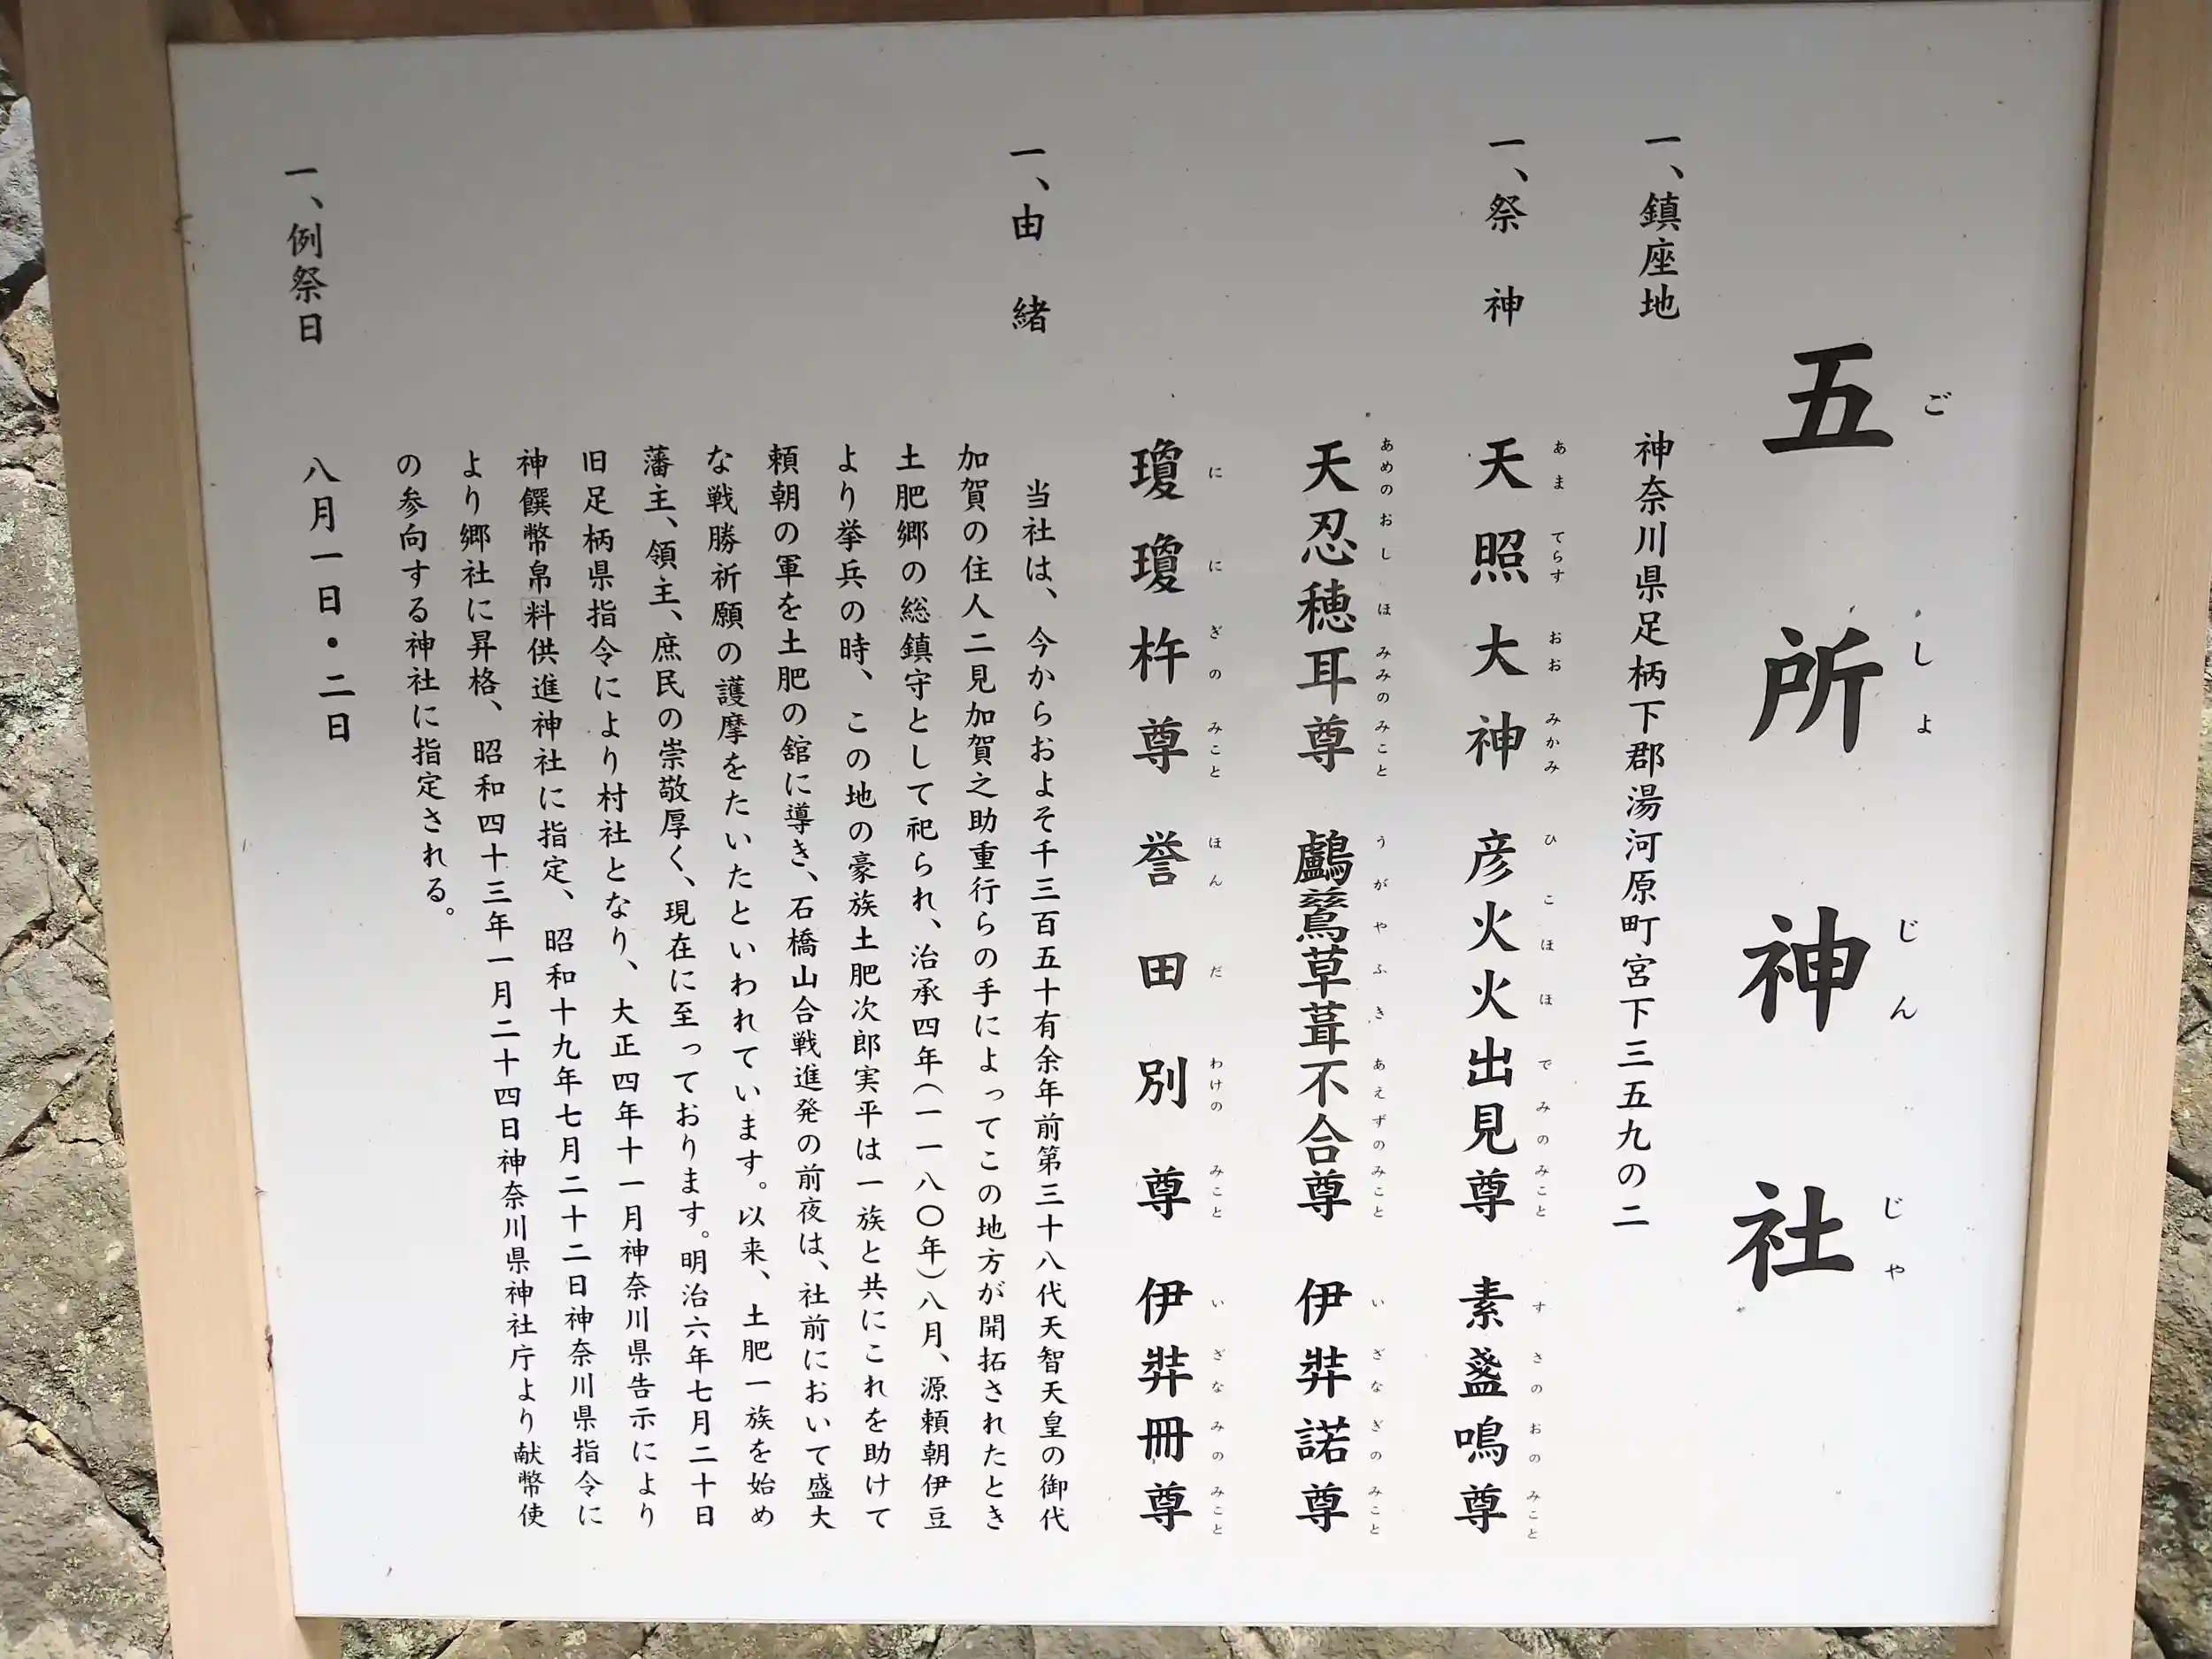 五所神社
ごしょじんじゃ
一、鎮座地 神奈川県足柄下郡湯河原町宮下三五九の二
一、祭神 天照大神 彦火火出見尊 素盞鳴尊
あまてらすおおみかみ ひこほほでみのみこと すさのおのみこと
天忍穂耳尊 鸕鶿草葺不合尊 伊弉諾尊
あめのおしほみみのみこと うがやふきあえずのみこと いざなぎのみこと
瓊瓊杵尊 誉田別尊 伊弉冊尊
ににぎのみこと ほんだわけのみこと いざなみのみこと
一、由緒
当社は、今からおよそ千三百五十有余年前第三十八代天智天皇の御代
加賀の住人二見加賀之助重行らの手によってこの地方が開拓されたとき
土肥郷の総鎮守として祀られ、治承四年(一一八〇年)八月、源頼朝伊豆
より挙兵の時、この地の豪族土肥次郎実平は一族と共にこれを助けて
頼朝の軍を土肥の舘に導き、石橋山合戦進発の前夜は、社前において盛大
な戦勝祈願の護摩をたいたといわれています。以来、土肥一族を始め
藩主、領主、庶民の崇敬厚く、現在に至っております。明治六年七月二十日
旧足柄県指令により村社となり、大正四年十一月神奈川県告示により
神饌幣帛料供進神社に指定、昭和十九年七月二十二日神奈川県指令に
より郷社に昇格、昭和四十三年一月二十四日神奈川県神社庁より献幣使
の参向する神社に指定される。
一、例祭日 八月一日・二日